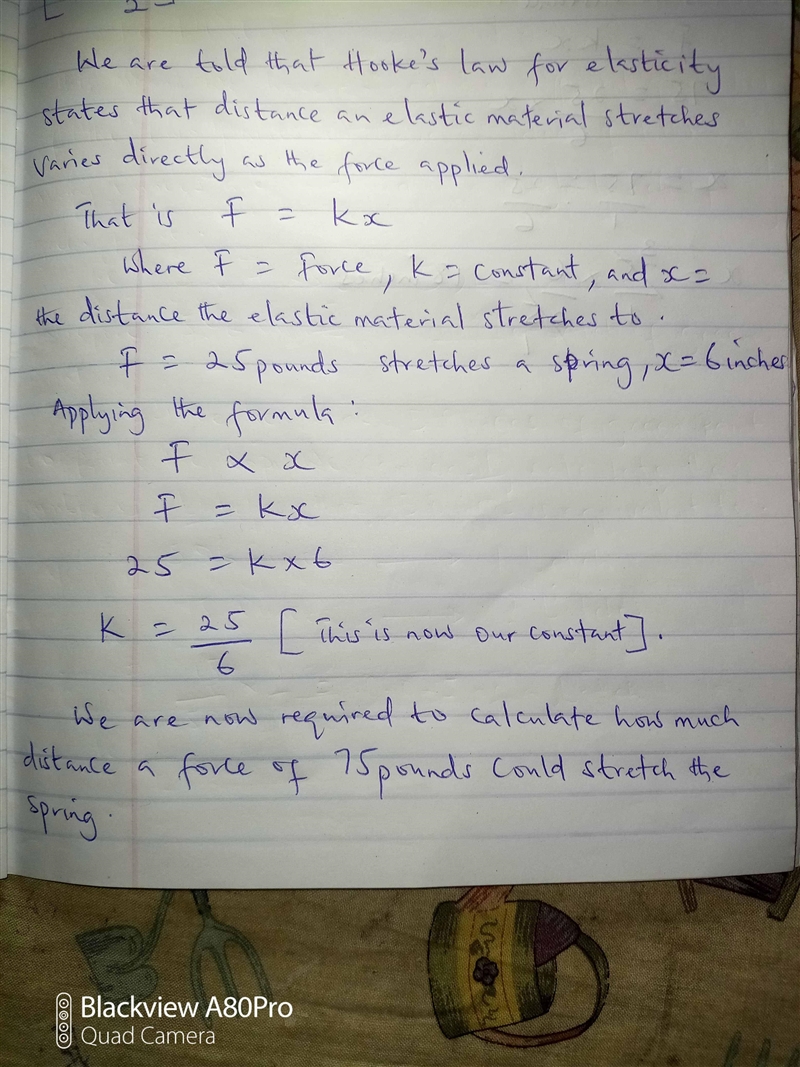 We are told that Hooke's law for elasticity
states that distance an elastic material stretches
varies directly as the force applied.
That is F = kx
Where F = Force, K = constant, and x =
the distance the elastic material stretches to.
F = 25 pounds stretches a spring, x = 6 inches
Applying the formula:
F ∝ x
F = kx
25 = k x 6
K = 25/6 [This is now our constant].
We are now required to calculate how much
distance a force of 75 pounds could stretch the
spring.
Blackview A80Pro
Quad Camera